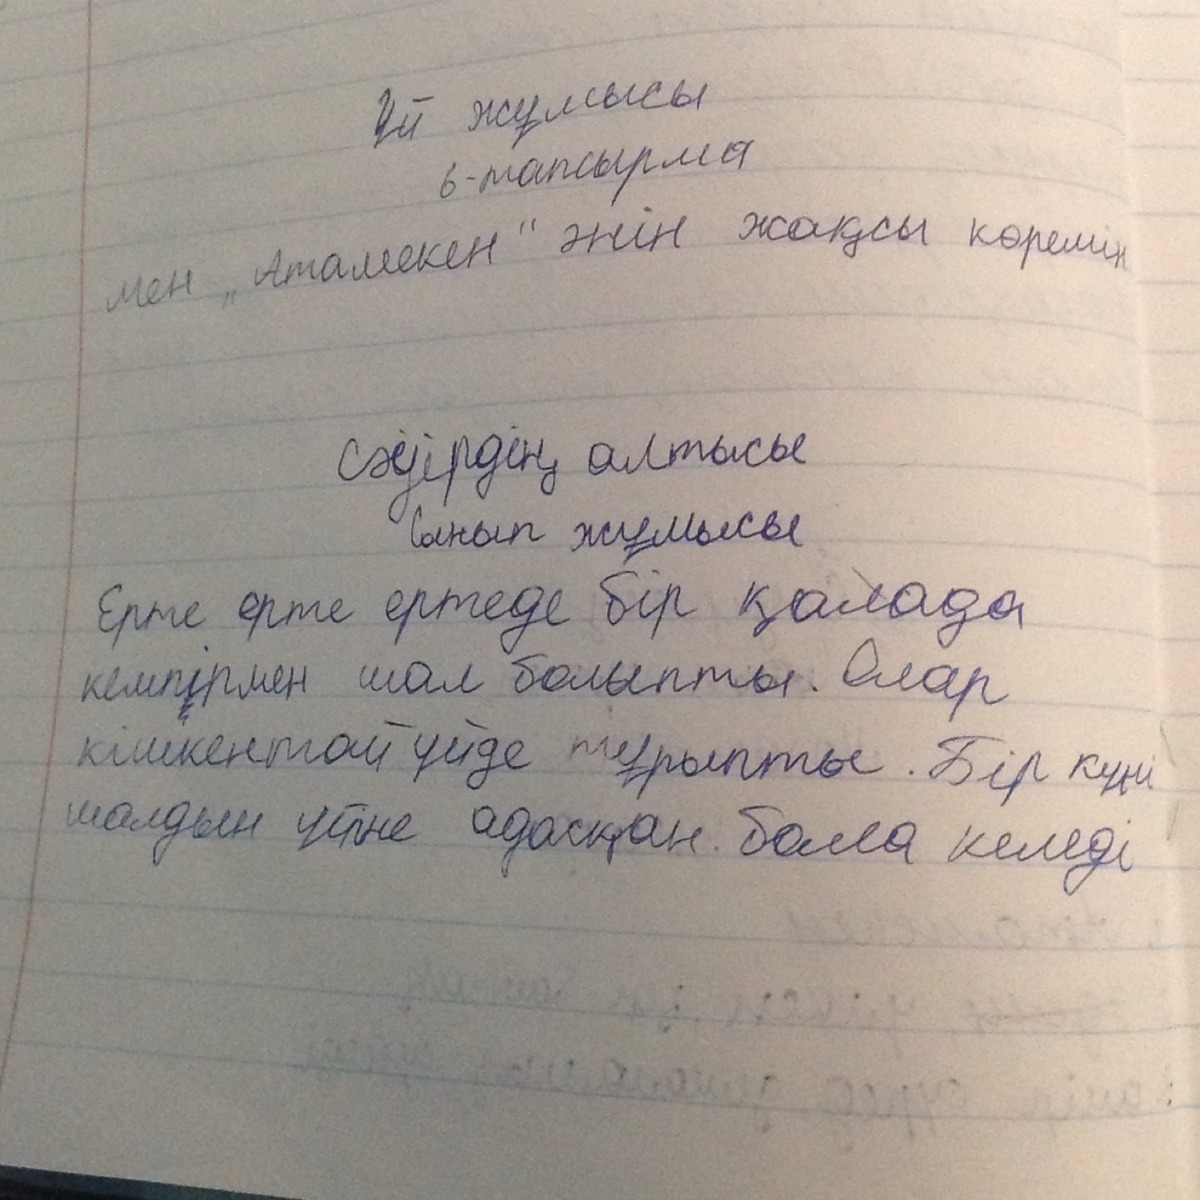 Үй жұмысы
6-тапсырма
мен „Атамекен" әнін жақсы көремін
Сәуірдің алтысы
Сынып жұмысы
Ерте ерте ертеде бір қалада
кемпірмен шал болыпты. Олар
кішкентай үйде тұрыпты. Бір күні
шалдын үйіне адасқан. бала келеді